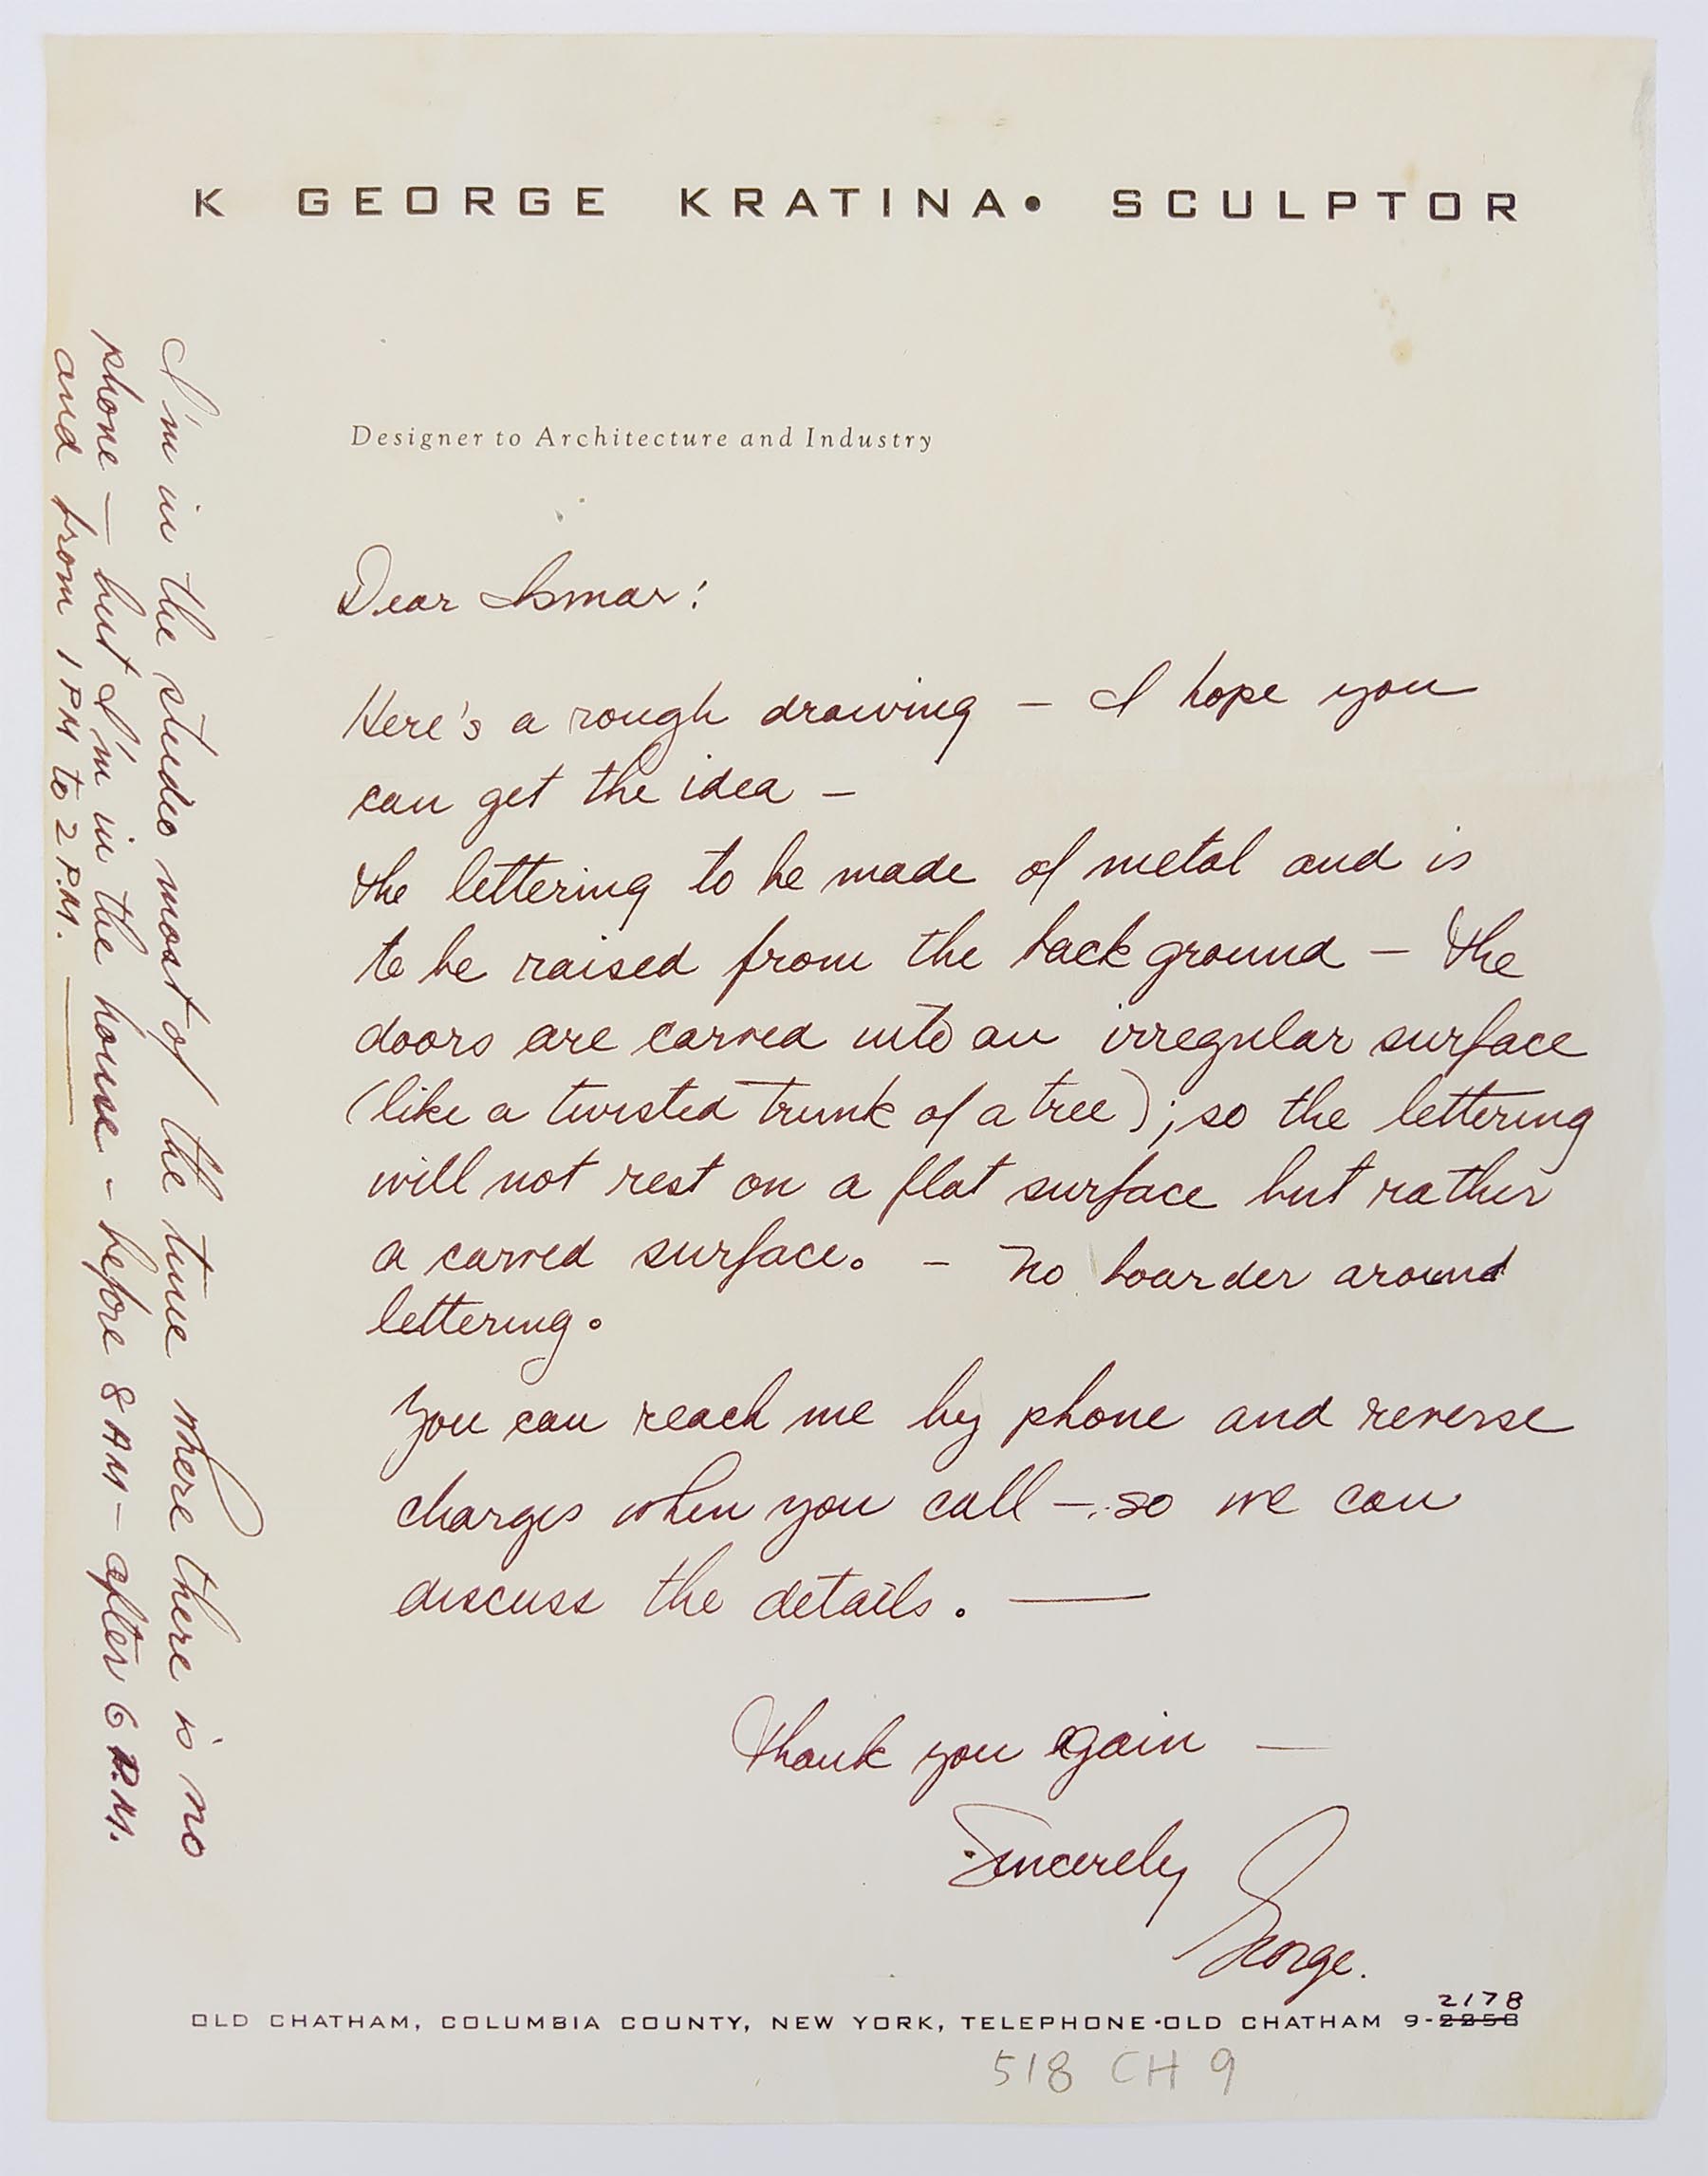 K GEORGE KRATINA• SCULPTOR
Designer to Architecture and Industry
Dear Ismar:
Here's a rough drawing – I hope you
can get the idea –
The lettering to be made of metal and is
to be raised from the back ground – The
doors are carved into an irregular surface
(like a twisted trunk of a tree); so the lettering
will not rest on a flat surface but rather
a carved surface. – No boarder around
lettering.
You can reach me by phone and reverse
charges when you call – so we can
discuss the details. —
Thank you again —
Sincerely
George.
I'm in the studio most of the time where there is no
phone — but I'm in the house – before 8 AM – after 6 P.M.
and from 1 PM to 2 P.M. —
2178
OLD CHATHAM, COLUMBIA COUNTY, NEW YORK, TELEPHONE·OLD CHATHAM 9-2258
518 CH 9